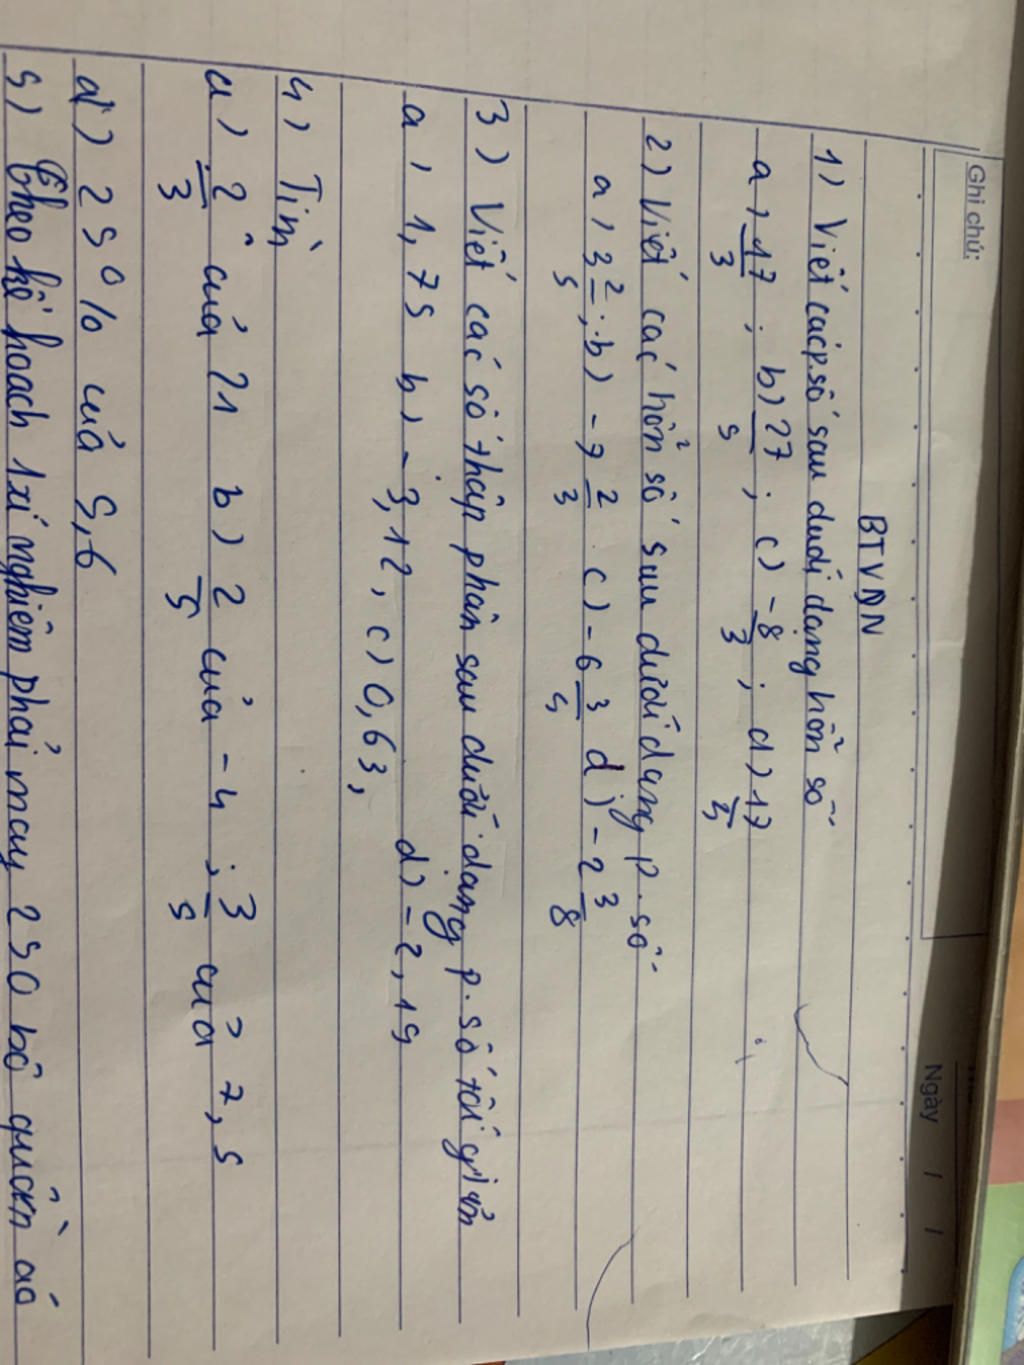 Ghi chú:
Ngày / /
BTVDN
1) Viết các p.số sau dưới dạng hỗn số
a) 17/3 ; b) 27/5 ; c) -8/3 ; d) 17/5
2) Viết các hỗn số sau dưới dạng p.số
a) 3 2/5 ; b) -7 2/3 c) -6 3/5 d) -2 3/8
3) Viết các số thập phân sau dưới dạng p.số tối giản
a) 1,75 b) -3,12, c) 0,63,
d) -2,15
4) Tìm
a) 2/3 của 21 b) 2/5 của -4 ; 3/5 của 7,5
d) 25% của 5,6
5) Theo kế hoạch 1 xí nghiệm phải may 250 bộ quần áo